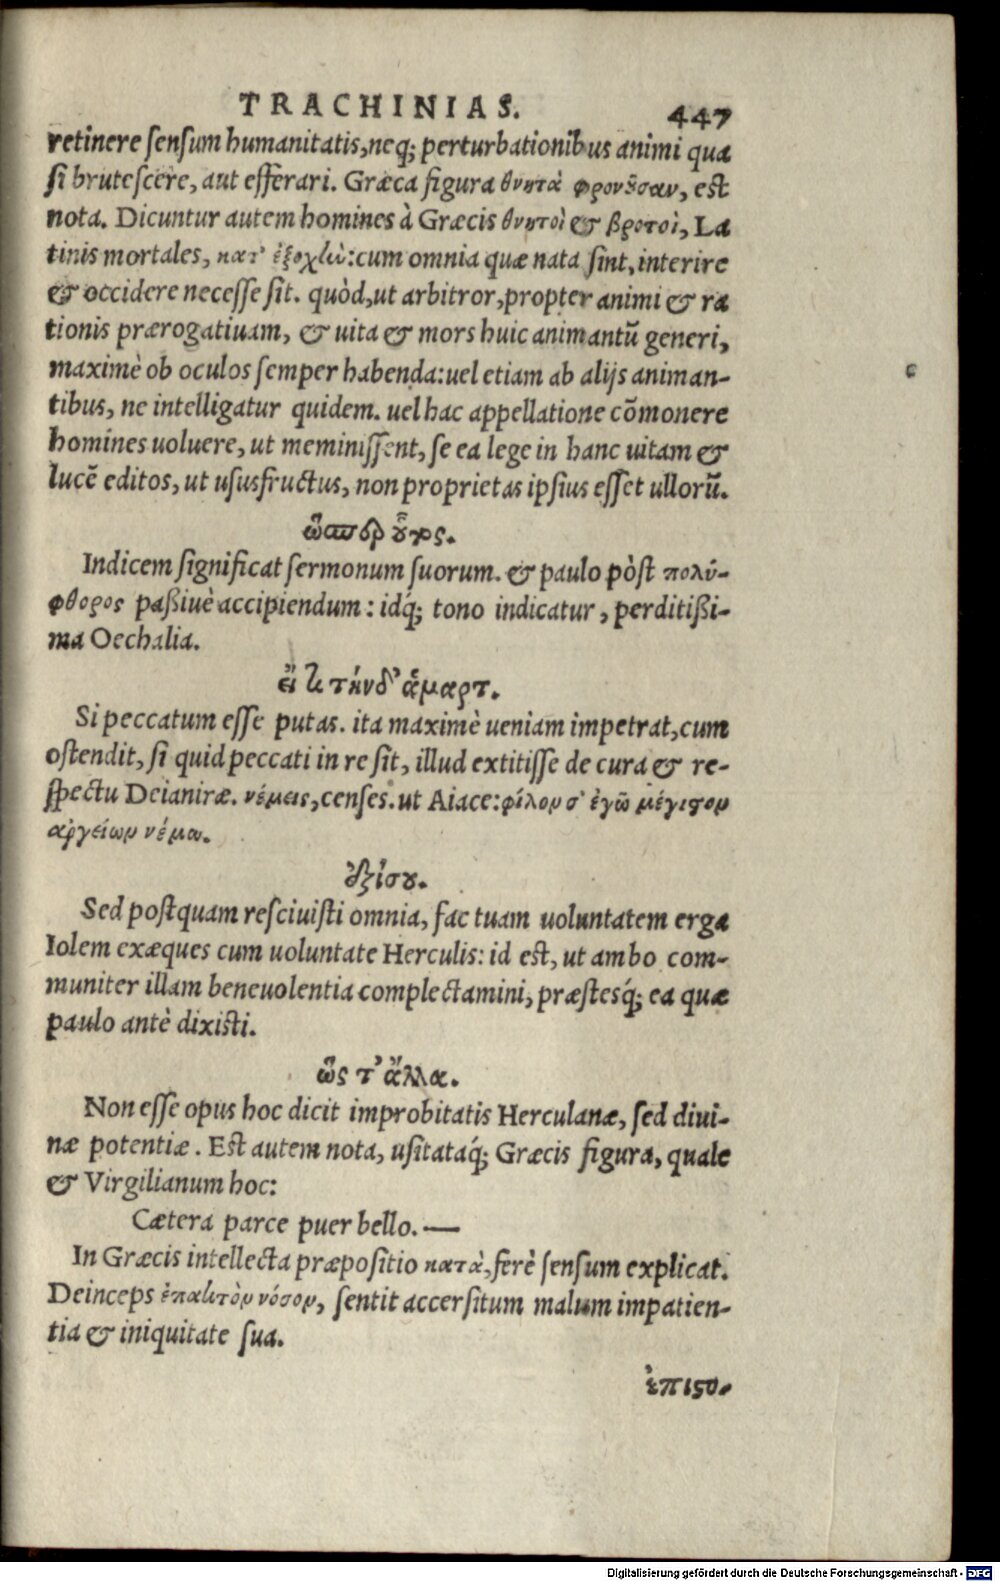 TRACHINIAS. 447
retinere sensum humanitatis, neq; perturbationibus animi qua
si brutescere, aut efferari. Græca figura θνητὰ φρονοῦσαν, est
nota. Dicuntur autem homines à Græcis θνητοὶ & βροτοὶ, La
tinis mortales, κατ' ἐξοχὴν: cum omnia quæ nata sint, interire
& occidere necesse sit. quòd, ut arbitror, propter animi & ra
tionis prærogatiuam, & uita & mors huic animantũ generi,
maximè ob oculos semper habenda: uel etiam ab alijs animan-
tibus, ne intelligatur quidem. uel hac appellatione cõmonere
homines uoluere, ut meminissent, se ea lege in hanc uitam &
lucẽ editos, ut ususfructus, non proprietas ipsius esset ullorũ.
ὥσπερ οὗτος.
Indicem significat sermonum suorum. & paulo pòst πολύ-
φθορος paßiuè accipiendum: idq́; tono indicatur, perditißi-
ma Oechalia.
εἴ τι τήνδ' ἁμαρτ.
Si peccatum esse putas. ita maximè ueniam impetrat, cum
ostendit, si quid peccati in re sit, illud extitisse de cura & re-
spectu Deianiræ. νέμεις, censes. ut Aiace: φίλον σ' ἐγὼ μέγιστον
ἀργείων νέμω.
ἐξίσου.
Sed postquam resciuisti omnia, fac tuam uoluntatem erga
Iolem exæques cum uoluntate Herculis: id est, ut ambo com-
muniter illam beneuolentia complectamini, præstesq́; ea quæ
paulo antè dixisti.
ὥς τ' ἄλλα.
Non esse opus hoc dicit improbitatis Herculanæ, sed diui-
næ potentiæ. Est autem nota, usitataq́; Græcis figura, quale
& Virgilianum hoc:
Cætera parce puer bello.—
In Græcis intellecta præpositio κατὰ, ferè sensum explicat.
Deinceps ἐπακτὸν νόσον, sentit accersitum malum impatien-
tia & iniquitate sua.
ἐπιστο-
Digitalisierung gefördert durch die Deutsche Forschungsgemeinschaft - DFG